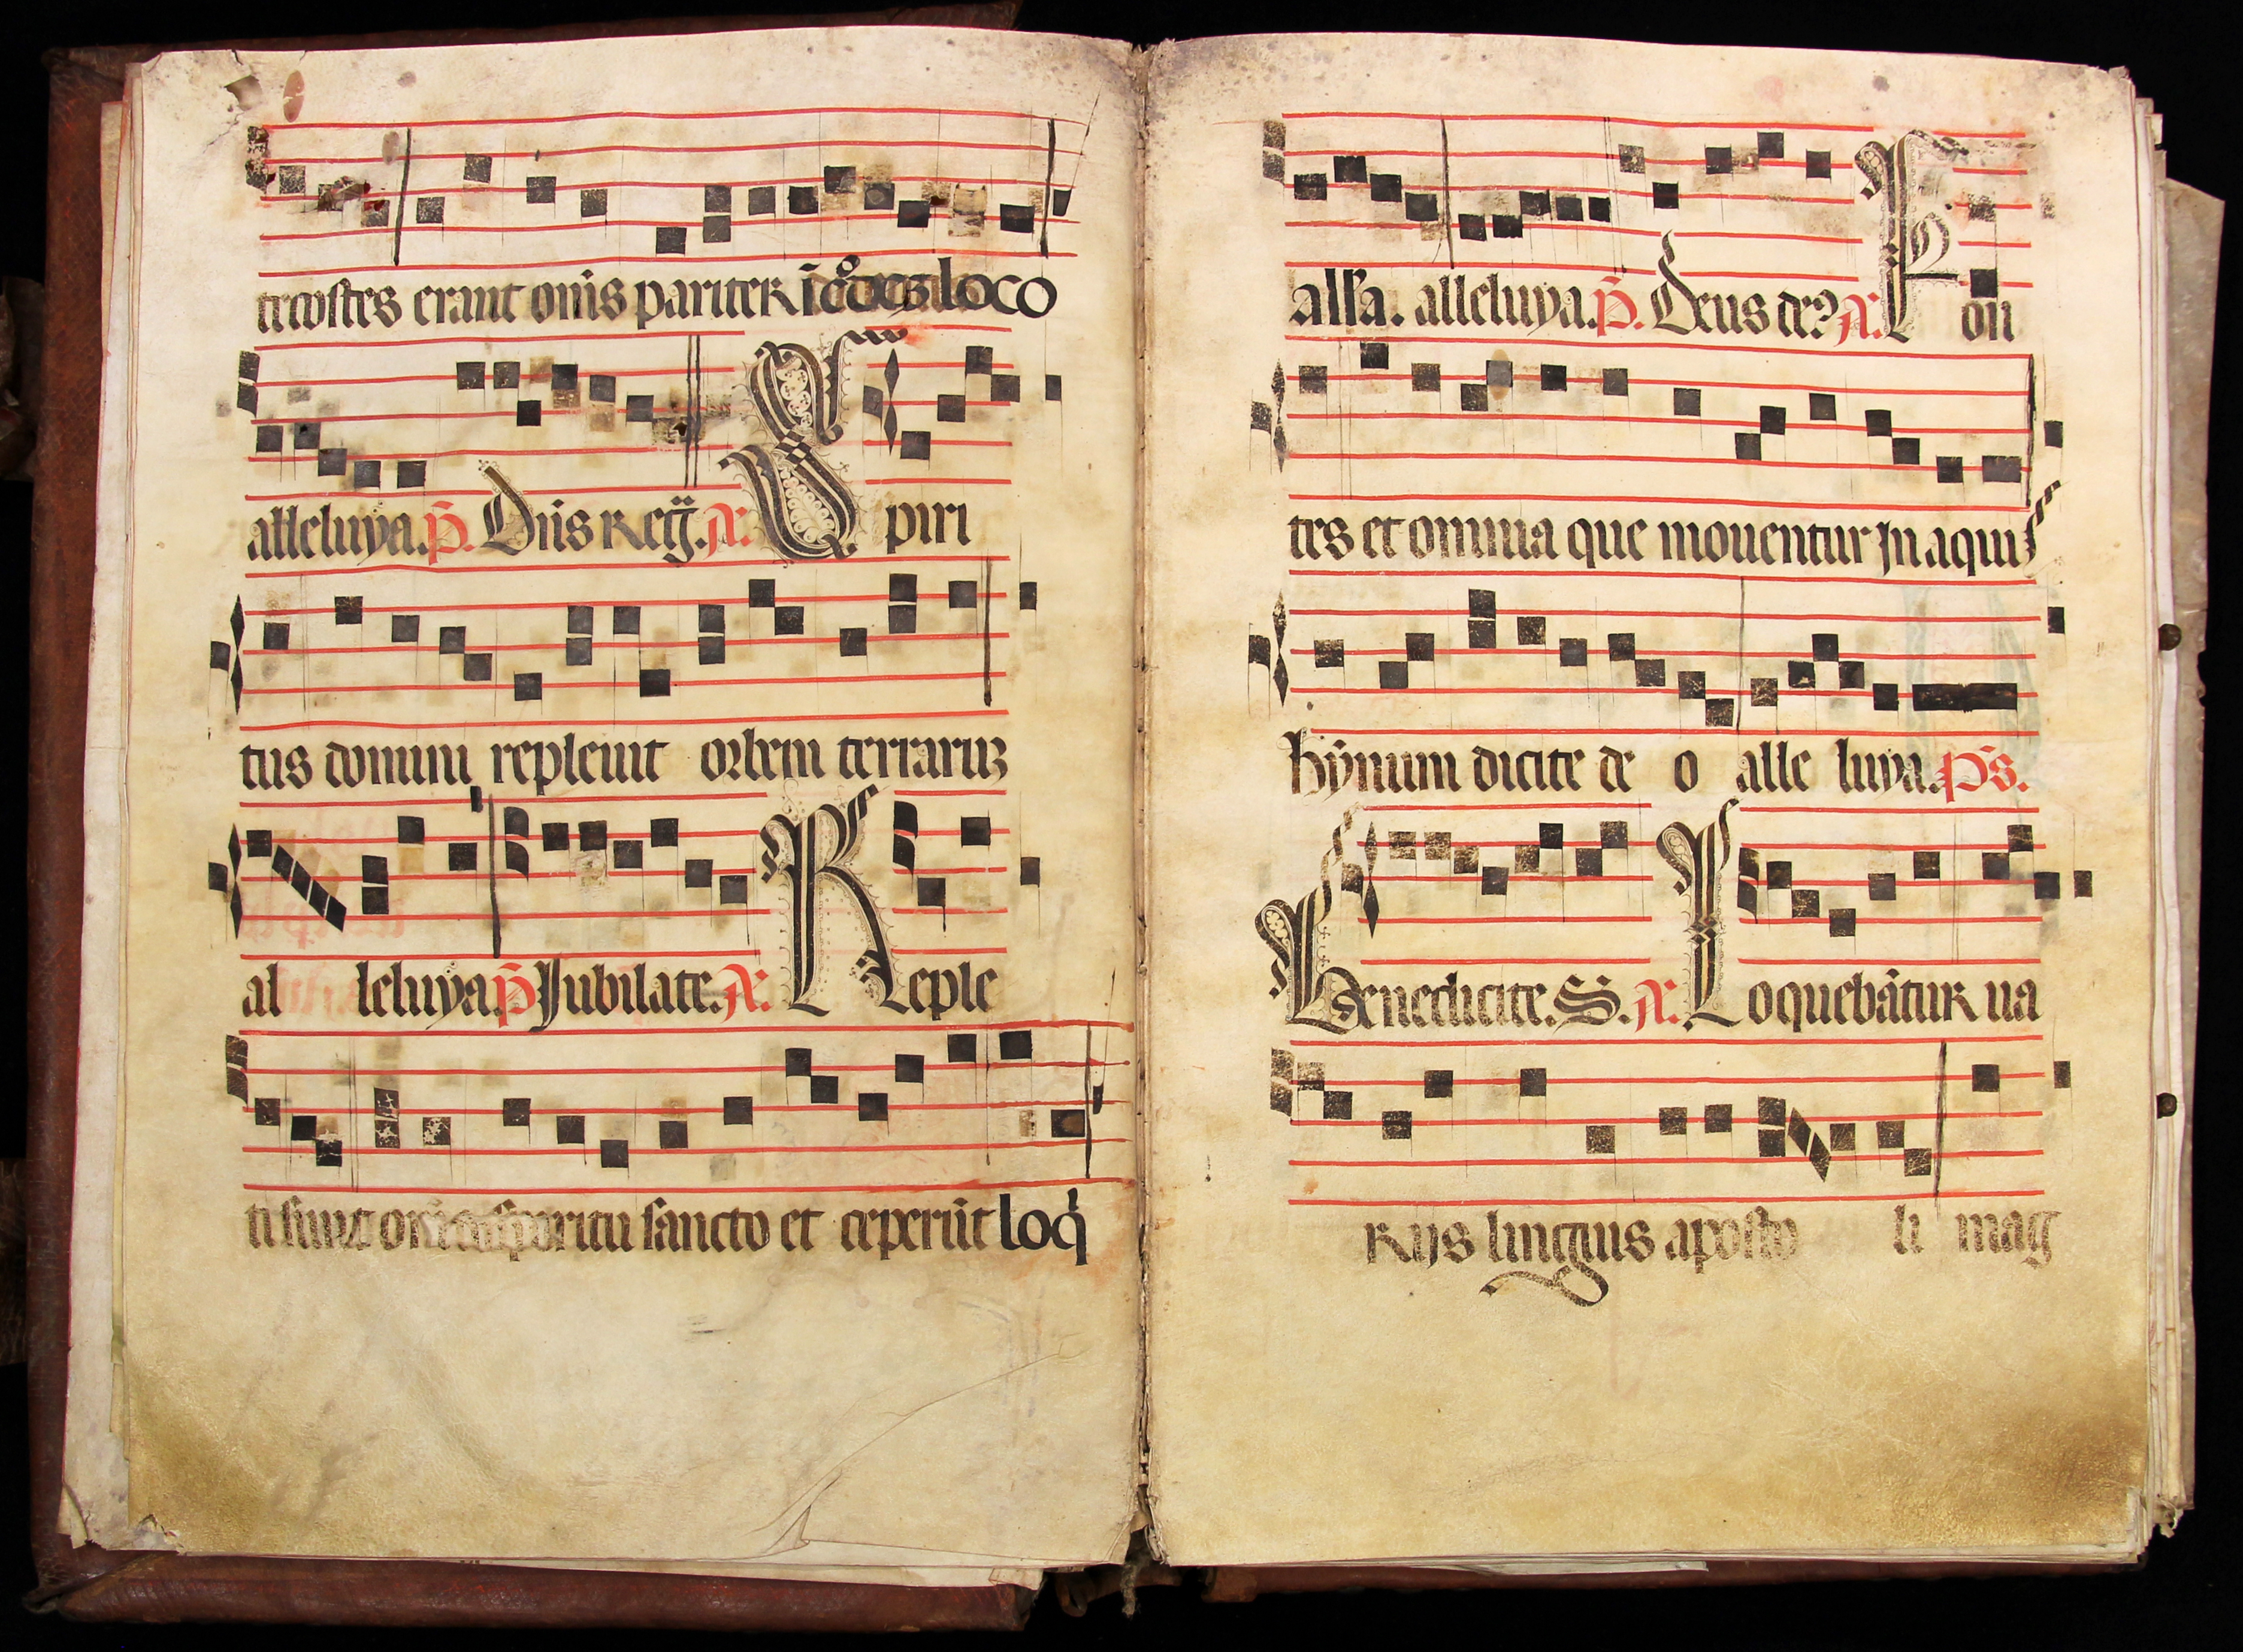 tecostes erant om̄s pariter ī eodeʒ loco
alleluya. p̄. Dn̄s Reg̈. A. S piri
tus domini repleuit orbem terraruʒ
al leluya. p̄ Iubilate. A. Reple
ti sunt om̄s spiritu sancto et ceperūt loq̄
alſa. alleluya. p̄. Deus de? A. F on
tes et omnia que mouentur In aquis
hȳmnum dicite de o alle luya. ps.
Benedicite. S. A. L oquebātur ua
Rijs linguis aposto li mag